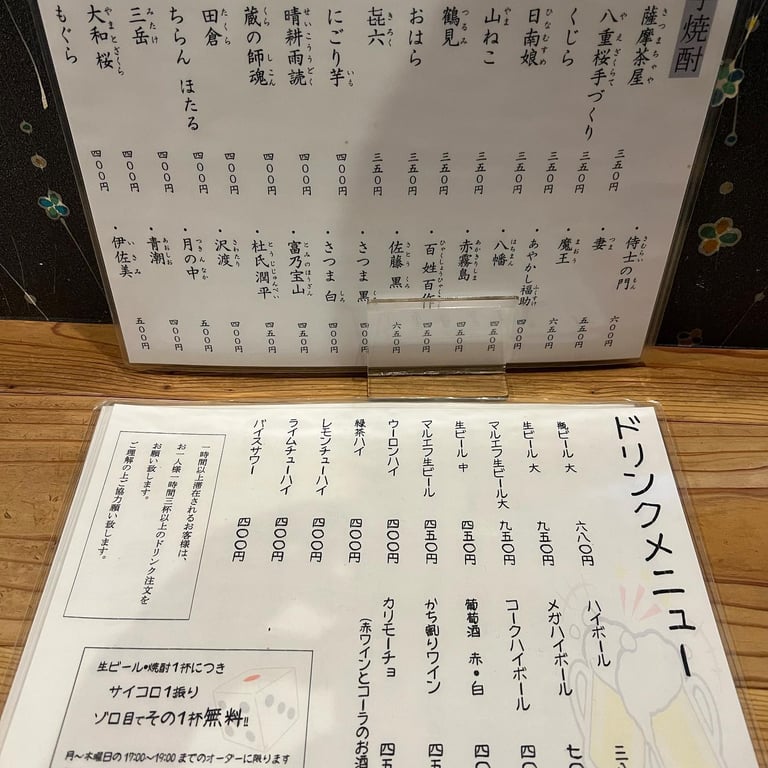 焼酎
薩摩茶屋 三五〇円
八重桜手づくり 三五〇円
くじら 三五〇円
日南娘 三五〇円
山ねこ 三五〇円
鶴見 三五〇円
おはら 三五〇円
㐂六 三五〇円
にごり芋 四〇〇円
晴耕雨読 四〇〇円
蔵の師魂 四〇〇円
田倉 四〇〇円
ちらん ほたる 四〇〇円
三岳 四〇〇円
大和桜 四〇〇円
もぐら 四〇〇円
・侍士の門 六〇〇円
・妻 五五〇円
・魔王 六五〇円
・あやかし福助 四〇〇円
・八幡 四五〇円
・赤霧島 四五〇円
・百姓百作 四五〇円
・佐藤 黒 六五〇円
・さつま 黒
・さつま 白 四〇〇円
・富乃宝山 四五〇円
・杜氏潤平 四五〇円
・沢渡 四〇〇円
・月の中 五〇〇円
・青潮 四〇〇円
・伊佐美 五〇〇円
ドリンクメニュー
瓶ビール 大 六八〇円
生ビール 大 九五〇円
マルエフ生ビール大 九五〇円
生ビール 中 四五〇円
マルエフ生ビール 四五〇円
ウーロンハイ 四〇〇円
緑茶ハイ 四〇〇円
レモンチューハイ 四〇〇円
ライムチューハイ 四〇〇円
バイスサワー 四〇〇円
ハイボール
メガハイボール
コークハイボール
葡萄酒 赤・白
かち割りワイン
カリモーチョ
(赤ワインとコーラのお酒
一時間以上滞在されるお客様は、
お一人様一時間三杯以上のドリンク注文を
お願い致します。
ご理解の上ご協力願い致します。
生ビール・焼酎1杯につき
サイコロ1振り
ゾロ目でその1杯無料!!
月〜木曜日の17:00〜19:00までのオーダーに限ります